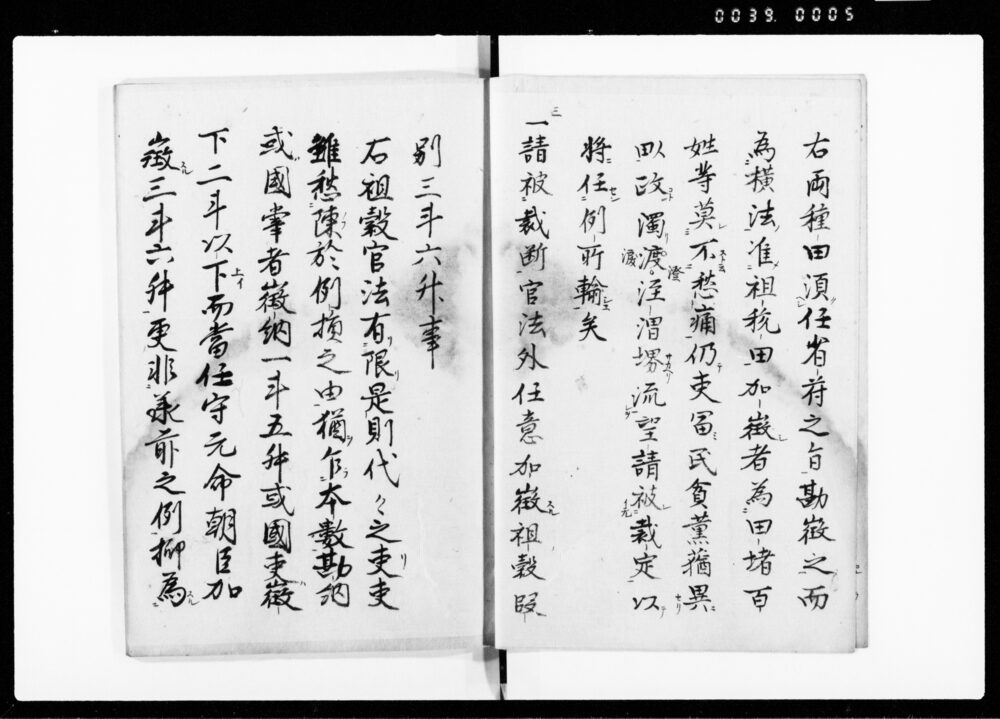 0039. 0005
右両種田須任省符之旨勘徴之而
為横法准祖税田加徴者為田堵百
姓等莫不愁痛仍吏冨民貧薫蕕異
畝政濁渡涇渭堺流望請被裁定以
将任例所輸矣
一請被裁断官法外任意加徴祖穀段
別三斗六升事
右祖穀官法有限是則代々之吏吏
雖愁陳於例損之由猶乍本数勘納
或國宰者徴納一斗五舛或國吏徴
下二斗以下而當任守元命朝臣加
徴三斗六舛更非羕前之例抑為